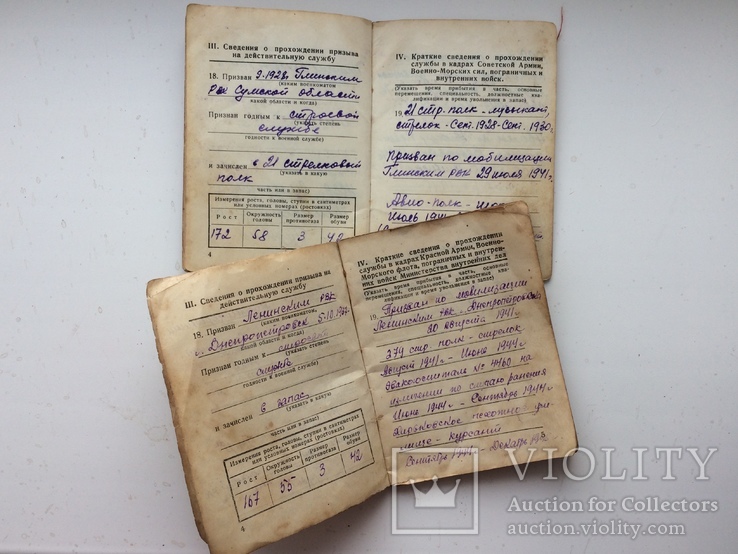 III. Сведения о прохождении призыва
на действительную службу
18. Призван 9-1928г Глинским
(каким военкоматом
РВК Сумской области
какой области и когда)
Признан годным к строевой
(указать степень
службе
годности к военной службе)
и зачислен в 21 стрелковый
(указать в какую
полк
часть или в запас)
Измерения роста, головы, ступни в сантиметрах
или условных номерах (ростовках)
Рост Окружность головы Размер противогаза Размер обуви
172 58 3 42
4
IV. Краткие сведения о прохождении
службы в кадрах Советской Армии,
Военно-Морских сил, пограничных и
внутренних войск.
(Указать время прибытия в часть, основные
перемещения, специальность, должностные ква-
лификации и время увольнения в запас)
19. 21 стр. полк - музыкант,
стрелок - Сент. 1928 - Сент. 1930г.
Призван по мобилизации
Глинским РВК 29 июля 1941г.
Авио-полк -
Июль 1941
III. Сведения о прохождении призыва на
действительную службу
18. Призван Ленинским РВК
(каким военкоматом,
г. Днепропетровск 5.10.
какой области и когда)
Признан годным к строевой
(указать степень
службе
годности к военной службе)
и зачислен в запас
(указать в какую
часть или в запас)
Измерения роста, головы, ступни в сантиметрах
или условных номерах (ростовках)
Рост Окружность головы Размер противогаза Размер обуви
167 55 3 42
4
IV. Краткие сведения о прохождении
службы в кадрах Красной Армии, Военно-
Морского флота, пограничных и внутрен-
них войск Министерства внутренних дел
(Указать время прибытия в часть, основные
перемещения, специальность, должностные ква-
лификации и время увольнения в запас)
19. Призван по мобилизации
Ленинским РВК г. Днепропетровска
20 августа 1941г.
379 стр. полк - стрелок
Август 1941г - Июнь 1944г
эвакогоспиталь № 4460 на
излечении по случаю ранения
Июнь 1944г - Сентябрь 1944г
пехотное учи-
лище - курсант
Сентябрь 1944 - Декабрь
VIOLITY
Auction for Collectors
auction.violity.com